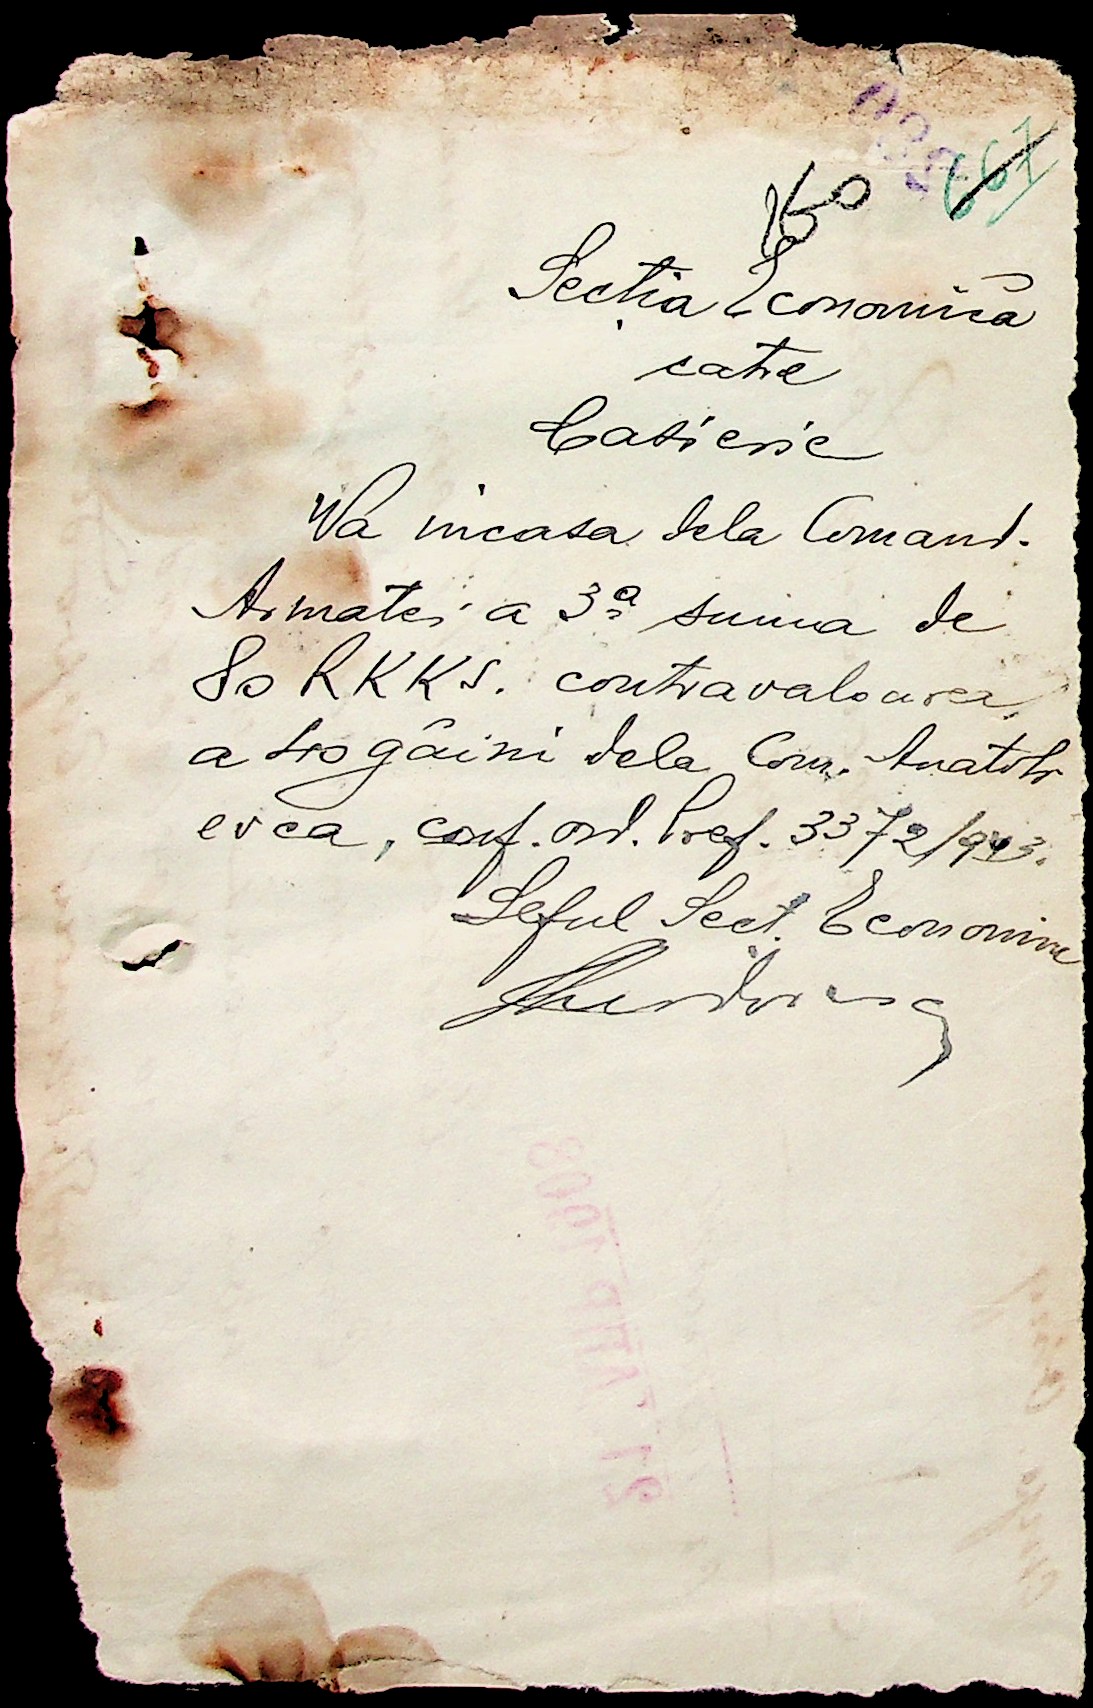 667
160
Secția Economică
catre
Casierie
Va incasa dela Comand.
Armatei a 3ª suma de
80 RKKS. contravaloarea
a 40 găini dela Com. Anatol
evca, conf. ord. Pref. 3372/943.
Șeful Secț. Economice